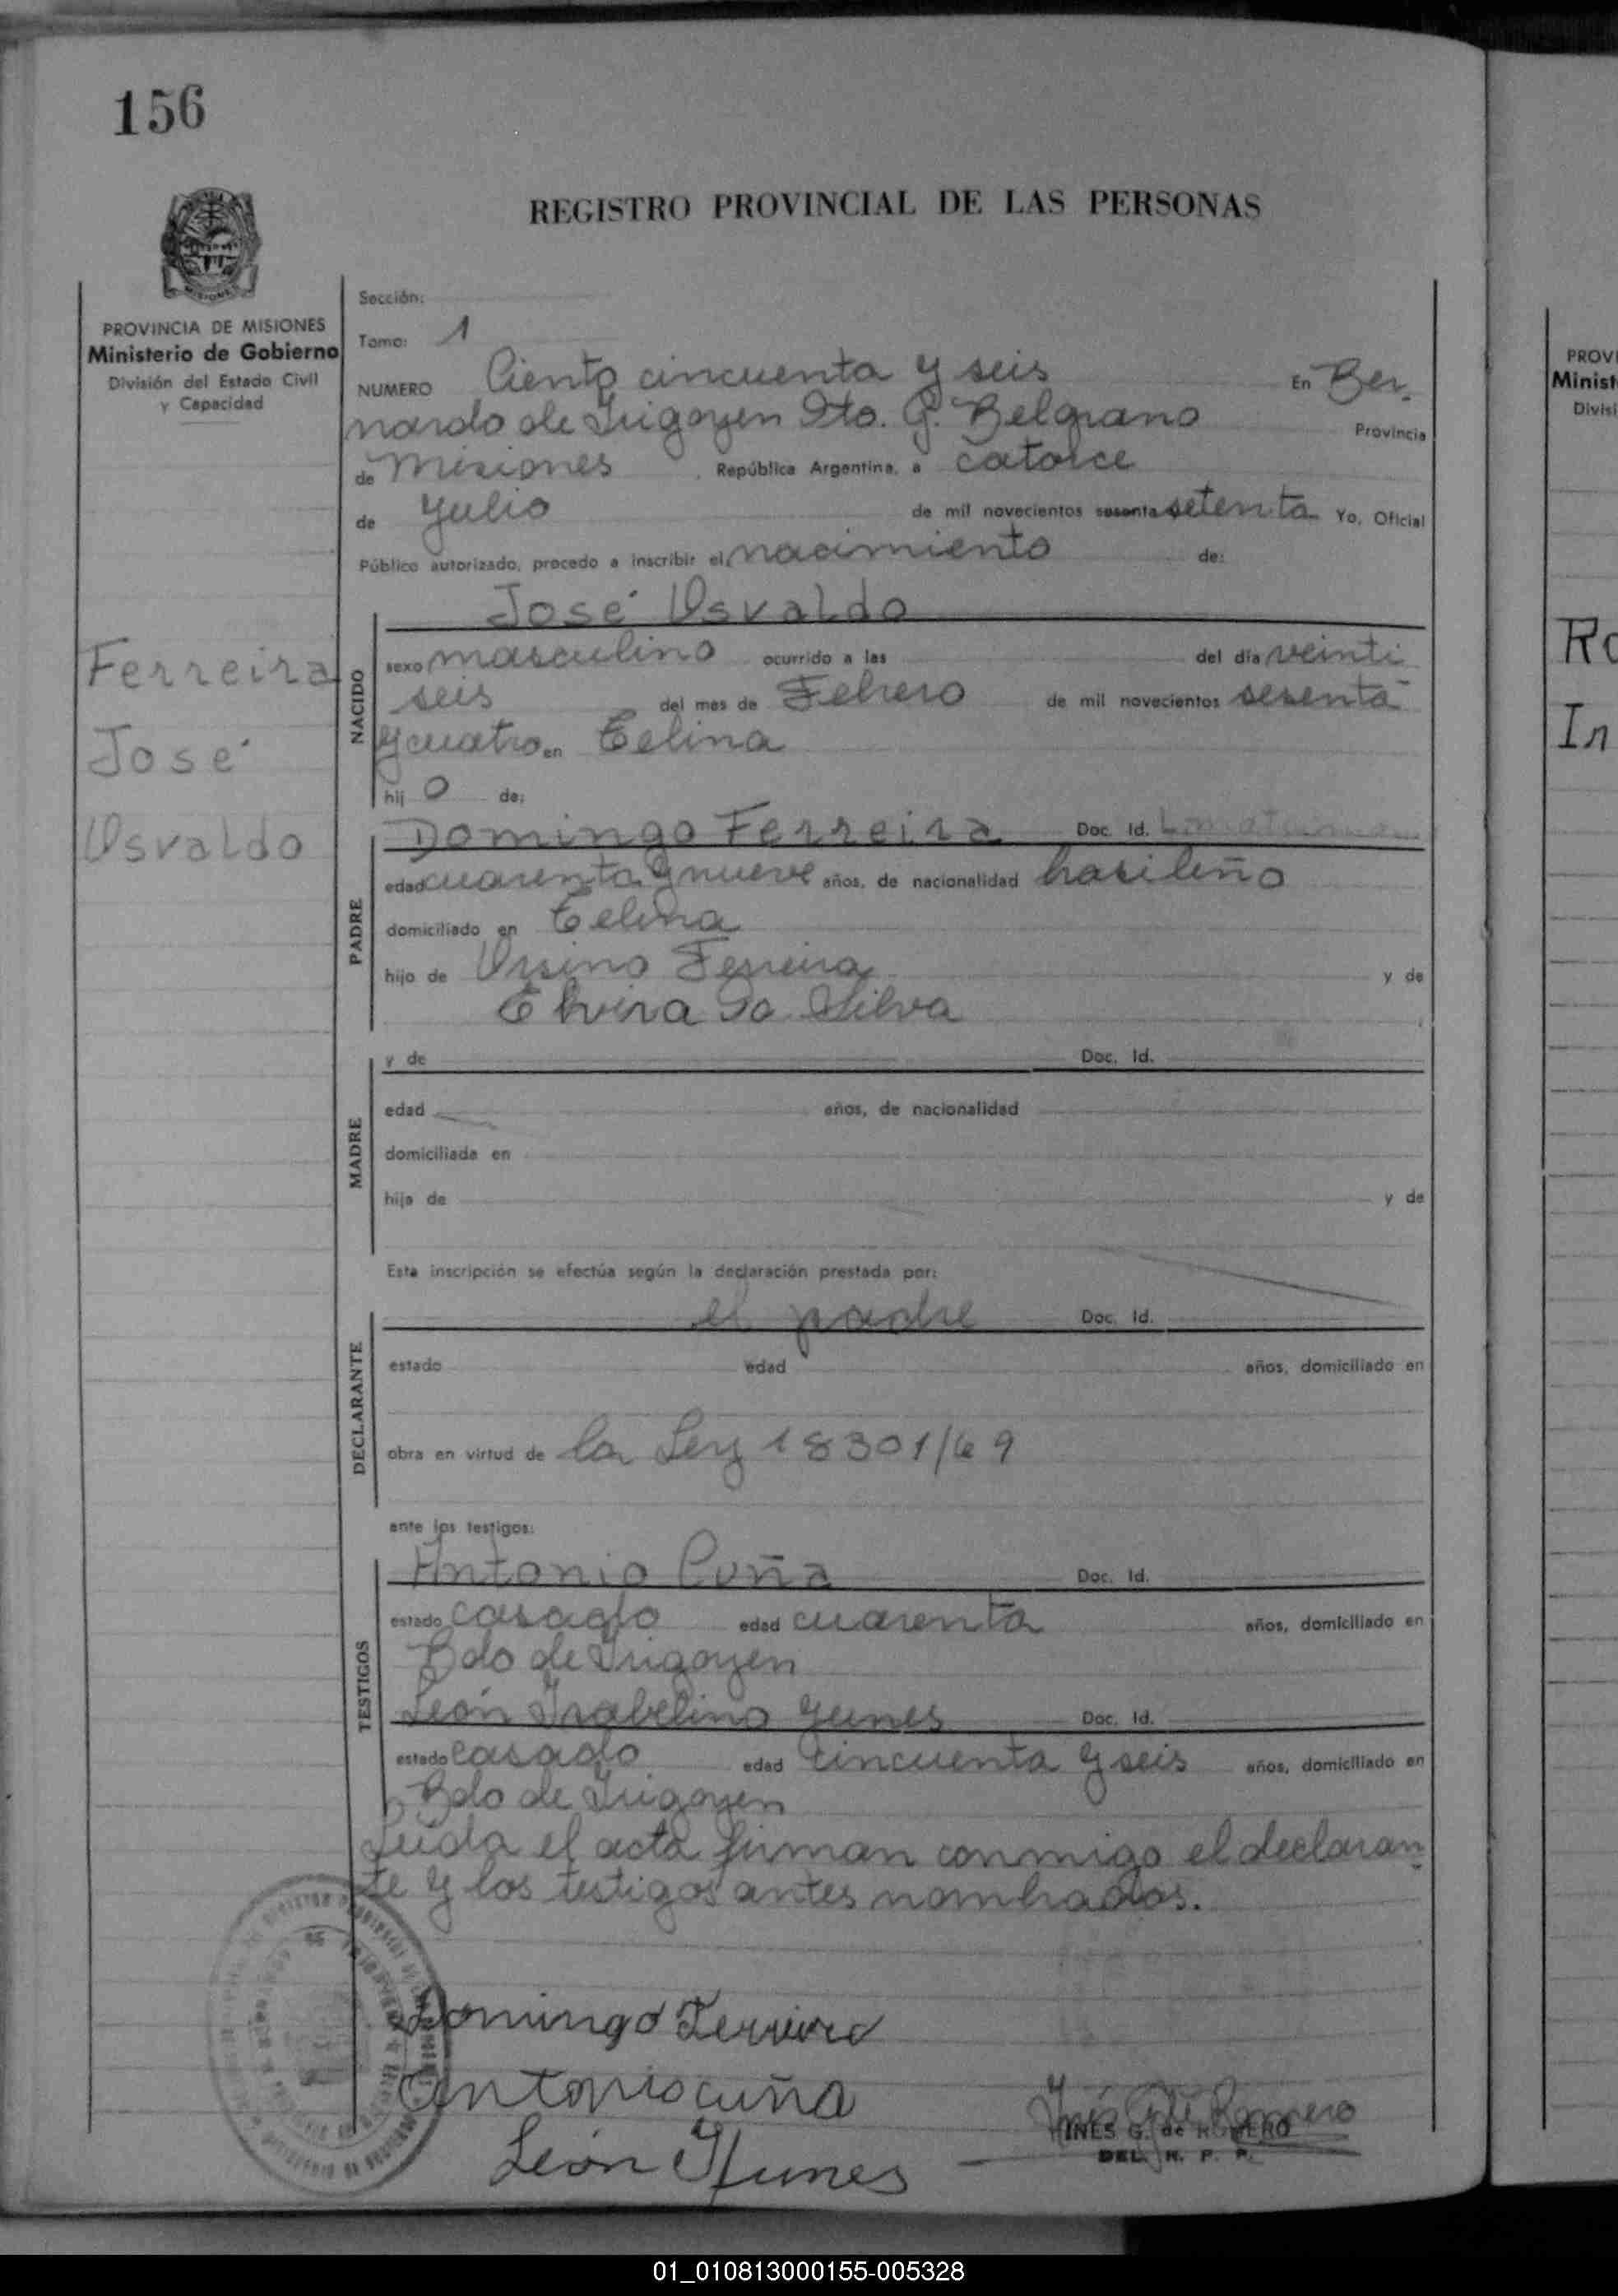 156
REGISTRO PROVINCIAL DE LAS PERSONAS
MISIONES
PROVINCIA DE MISIONES
Ministerio de Gobierno
División del Estado Civil
y Capacidad
Sección:
Tomo: 1
NUMERO Ciento cincuenta y seis En Ber-
nardo de Irigoyen Dto. G. Belgrano Provincia
de Misiones República Argentina, a catorce
de Julio de mil novecientos sesenta setenta Yo, Oficial
Público autorizado, procedo a inscribir el nacimiento de:
José Osvaldo
Ferreira
José
Osvaldo
NACIDO
sexo masculino ocurrido a las del día veinti
seis del mes de Febrero de mil novecientos sesenta
y cuatro en Celina
hij o de:
PADRE
Domingo Ferreira Doc. Id.
edad cuarenta y nueve años, de nacionalidad brasileño
domiciliado en Celina
hijo de Ursino Ferreira y de
Elvira Da Silva
MADRE
y de Doc. Id.
edad años, de nacionalidad
domiciliada en
hija de y de
Esta inscripción se efectúa según la declaración prestada por:
DECLARANTE
el padre Doc. Id.
estado edad años, domiciliado en
obra en virtud de la Ley 18301/69
ante los testigos:
TESTIGOS
Antonio Cuña Doc. Id.
estado casado edad cuarenta años, domiciliado en
Bdo de Irigoyen
León Isabelino Yunes Doc. Id.
estado casado edad cincuenta y seis años, domiciliado en
Bdo de Irigoyen
Leída el acta firman conmigo el declaran-
te y los testigos antes nombrados.
Domingo Ferreira
Antonio cuña
León Yunes
Inés G. de Romero
INES G. de ROMERO
DEL. R. P. P.
PROVI
Minist
Divisi
Ro
In
01_010813000155-005328